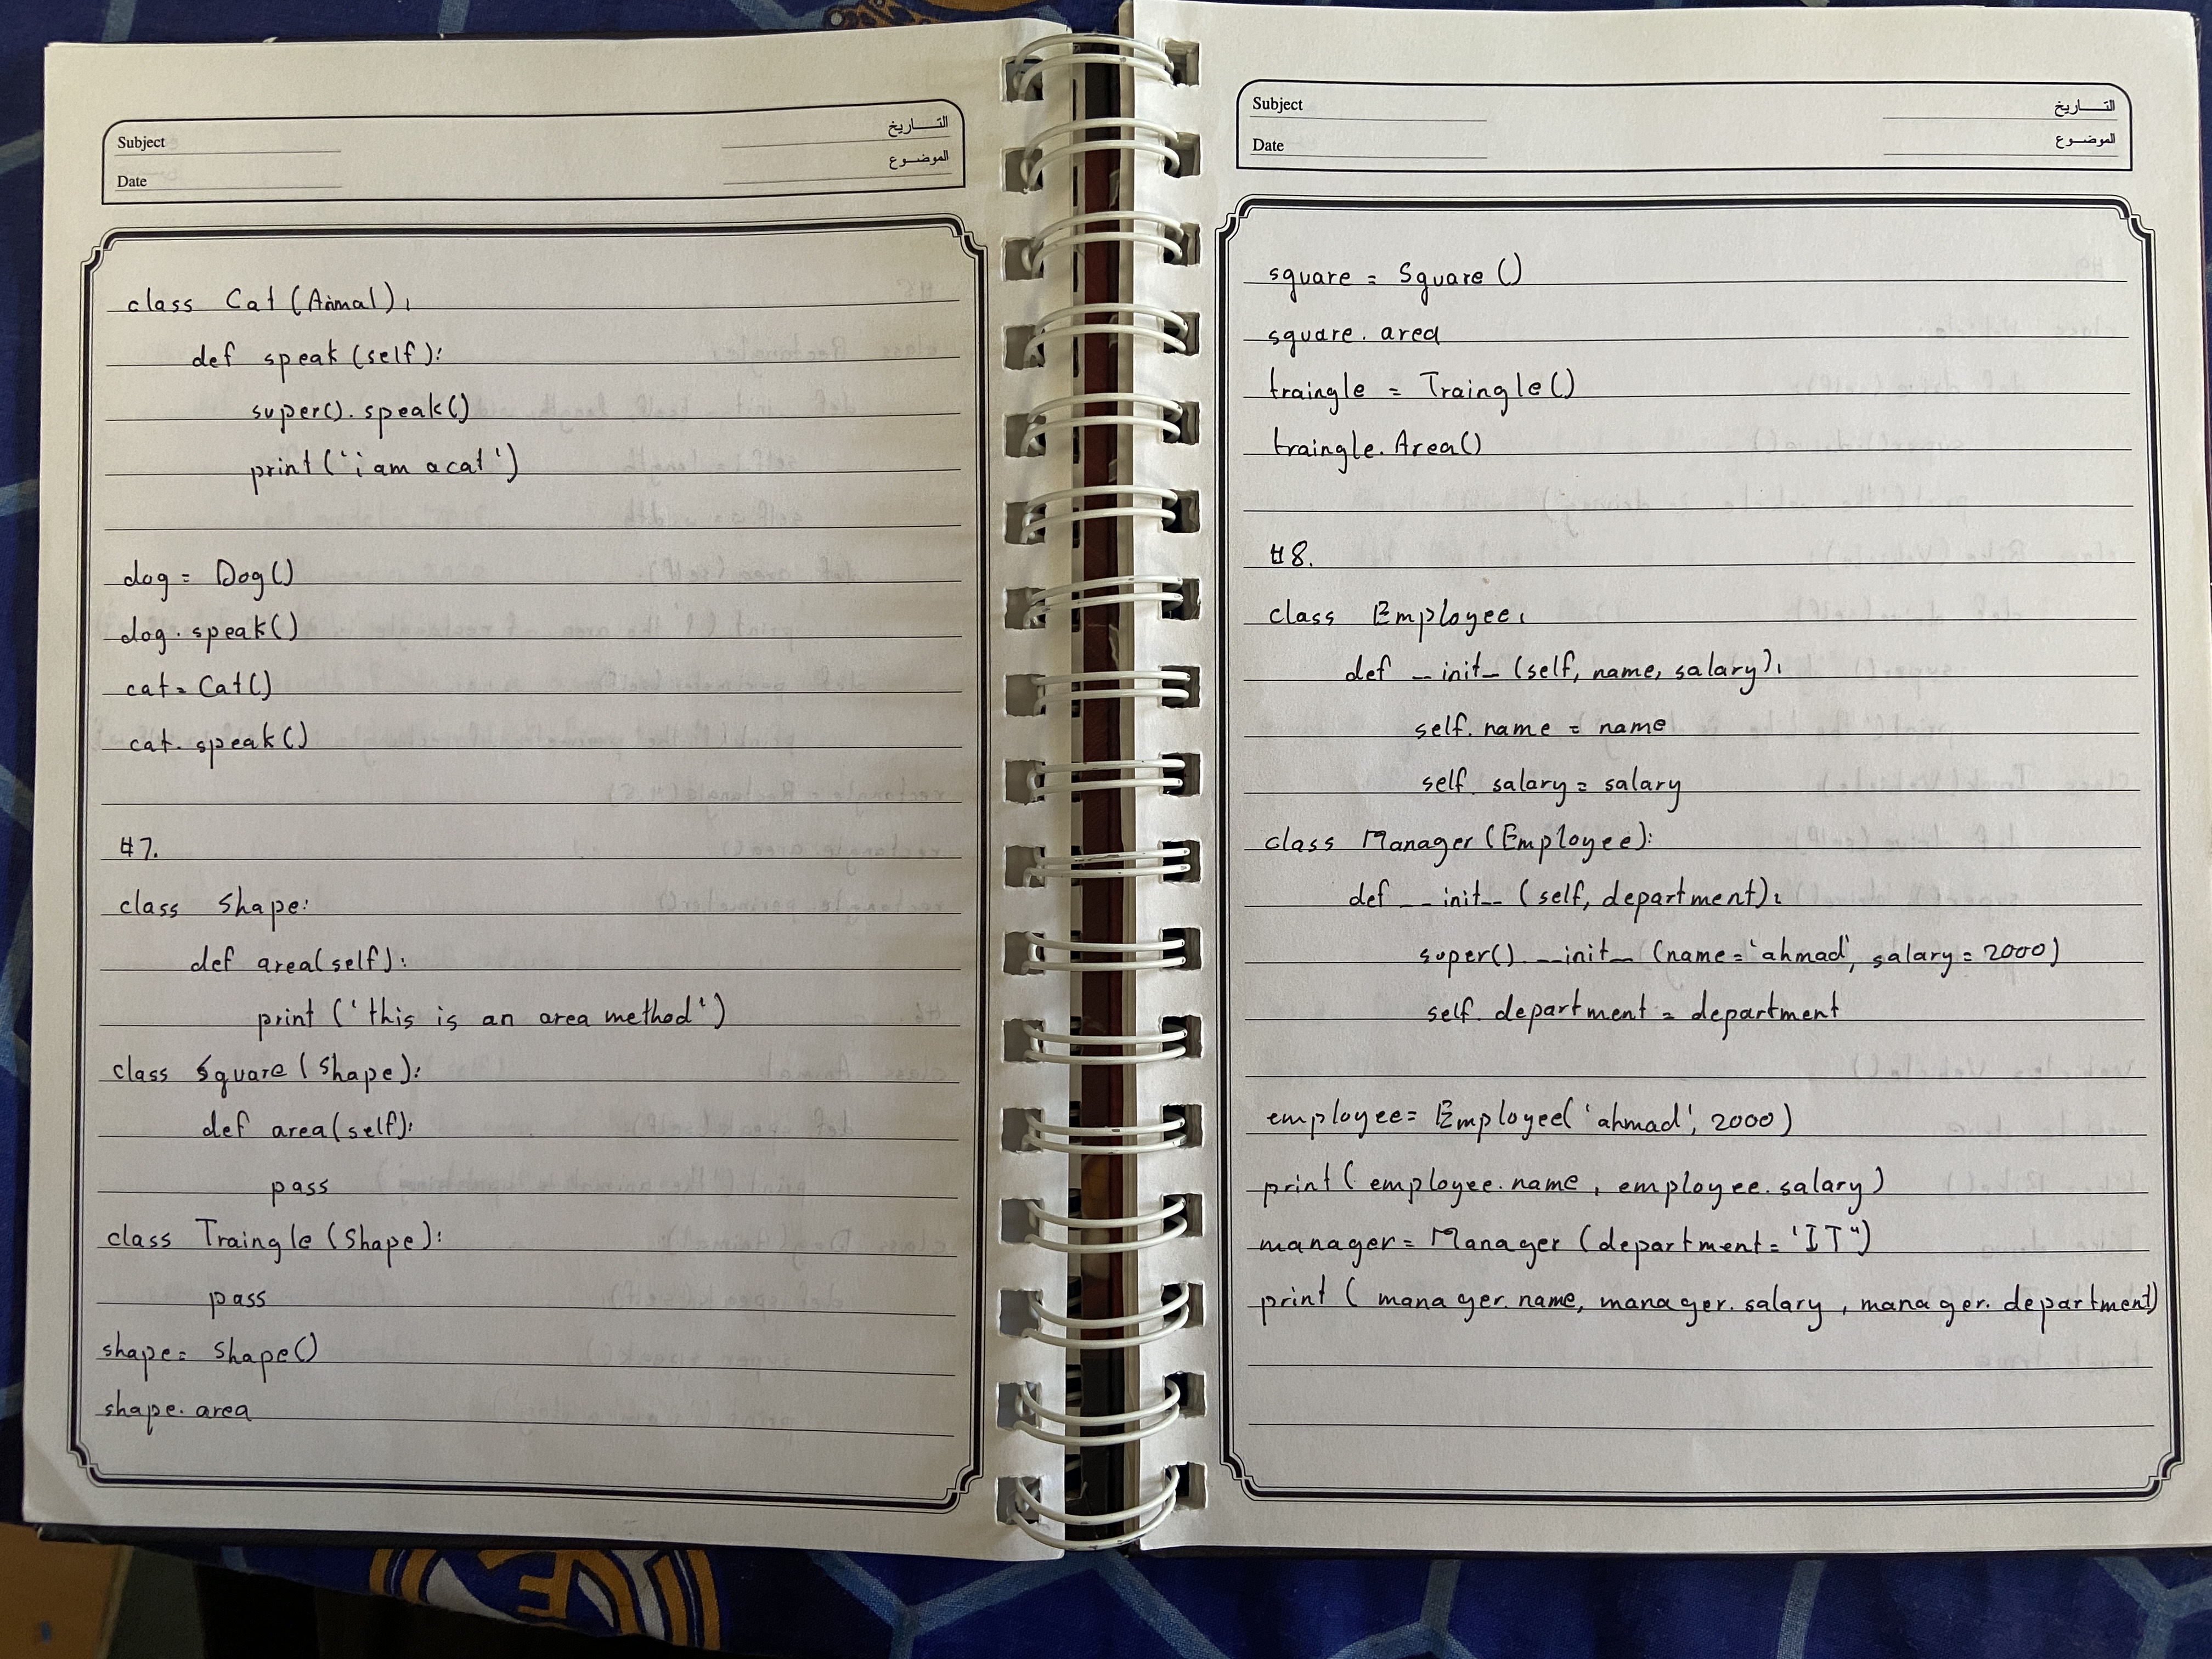 Subject
Date
التاريخ
الموضوع
class Cat (Animal):
def speak (self):
super().speak()
print ('i am a cat')
dog = Dog()
dog.speak()
cat = Cat()
cat.speak()
#7.
class Shape:
def area(self):
print ('this is an area method')
class Square (Shape):
def area (self):
pass
class Traingle (Shape):
pass
shape = Shape()
shape.area
Subject
Date
التاريخ
الموضوع
square = Square ()
square.area
traingle = Traingle ()
traingle.Area()
#8.
class Employee:
def __init_ (self, name, salary):
self.name = name
self.salary = salary
class Manager (Employee):
def __init__ (self, department):
super().__init__ (name='ahmad', salary=2000)
self.department = department
employee = Employee('ahmad', 2000)
print (employee.name, employee.salary)
manager = Manager (department = 'IT")
print ( manager.name, manager.salary, manager.department)